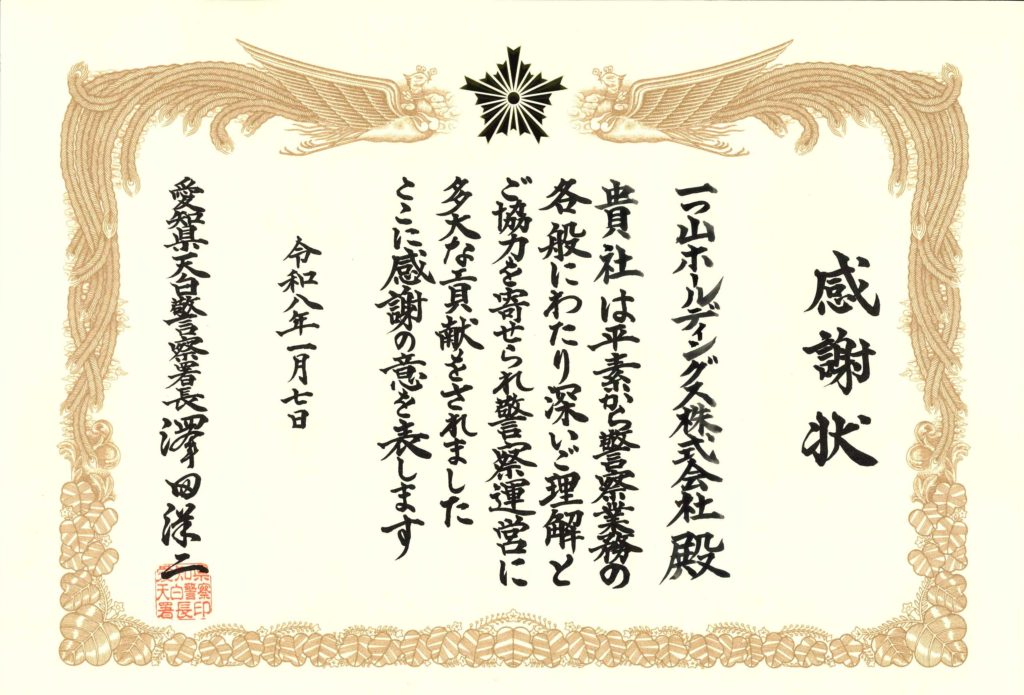 感謝状
一つ山ホールディングス株式会社 殿
貴社は平素から警察業務の
各般にわたり深いご理解と
ご協力を寄せられ警察運営に
多大な貢献をされました
ここに感謝の意を表します
令和八年一月七日
愛知県天白警察署長 澤田洋二
愛知県天白警察署長印